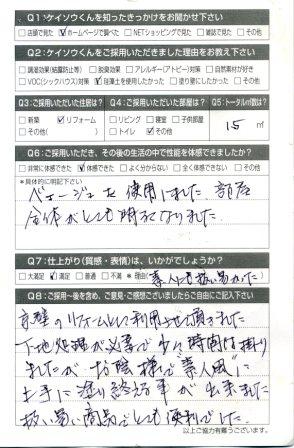 Q1:ケイソウくんを知ったきっかけをお聞かせ下さい
□店頭で見た ☑ホームページで調べた □NETショッピングで見た □雑誌で見た □その他
Q2:ケイソウくんをご採用いただきました理由をお教え下さい
□調湿効果(結露防止等) □脱臭効果 □アレルギー(アトピー)対策 □自然素材が好き
□VOC(シックハウス)対策 ☑珪藻土を使用したかった □塗り壁にしたかった □その他
Q3:ご採用いただいた住居は?
□新築 ☑リフォーム
□その他( )
Q4:ご採用いただいた部屋は?
□リビング □寝室 □子供部屋
□トイレ ☑その他(
Q5:トータル㎡数は?
15 ㎡
Q6:ご採用いただき、その後の生活の中で性能を体感できましたか?
□非常に体感できた ☑体感できた □よく分からない □全く体感できない □その他
*具体的に明記下さい
ベージュを使用しました 部屋
全体がとても明るくなりました
Q7:仕上がり(質感・表情)は、いかがでしょうか?
□大満足 ☑満足 □普通 □不満 *理由(素人でも扱い易かった)
Q8:ご採用~後を含め、ご意見・ご感想ございましたらご自由にご記入下さい
京壁のリフォームとして利用させて頂きました
下地処理が必要で少々時間は掛り
ましたがお陰様で"素人風"に
上手に塗り終える事が出来ました
扱い易い商品でとても便利でした。
以上ご協力有難うございます。